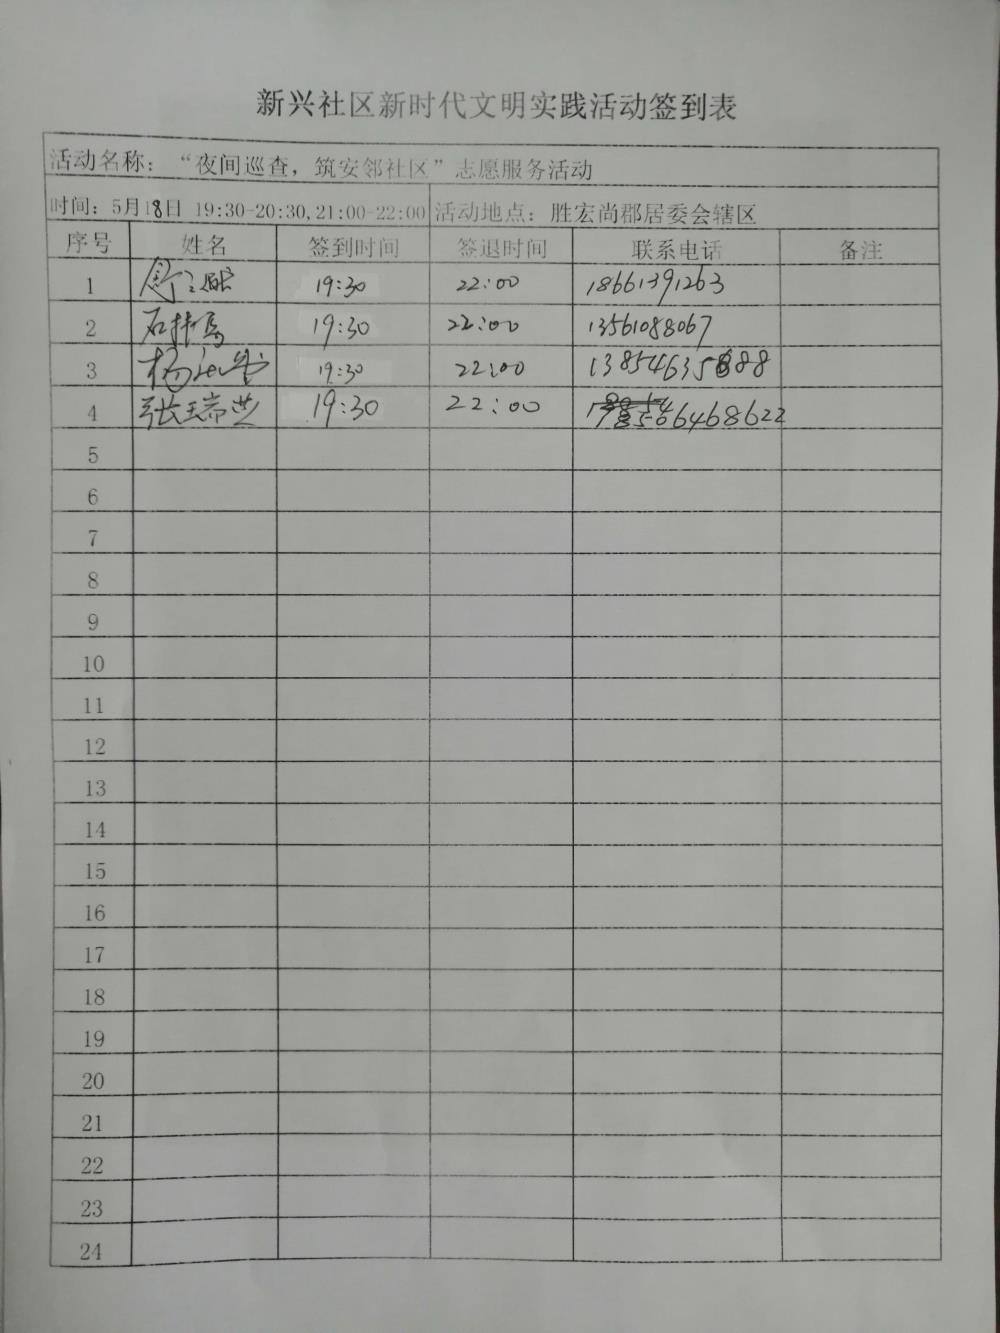 新兴社区新时代文明实践活动签到表
活动名称：“夜间巡查，筑安邻社区”志愿服务活动
时间：5月18日 19:30-20:30,21:00-22:00 活动地点：胜宏尚郡居委会辖区
序号 姓名 签到时间 签退时间 联系电话 备注
1 19:30 22:00 18661391263
2 19:30 22:00 13561088067
3 杨 19:30 22:00 13854635888
4 张瑞芝 19:30 22:00
5
6
7
8
9
10
11
12
13
14
15
16
17
18
19
20
21
22
23
24